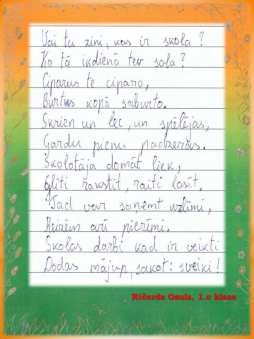 Vai tu zini, kas ir skola?
Ko tā ikdienā tev sola?
Ciparus te ciparo,
Burtus kopā saburto.
Skrien un lec, un spēlējas,
Gardu pienu padzeras.
Skolotāja domāt liek,
Glīti rakstīt, raiti lasīt.
Tad var saņemt uzlīmi,
Buriem arī pierīmi.
Skolas darbi kad ir veikti
Dodas mājup, sakot: sveiki!
Ričards Ozols, 1.c klase